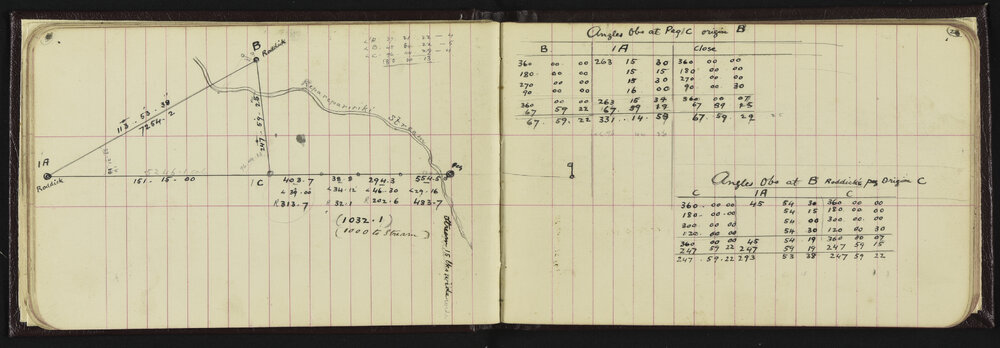 B
Roddick
113 - 53 - 38
7254.2
247 - 59 - 25
Stream
1A
Roddick
151 - 15 - 00
1C
Peg
403.7 38.8 294.3 554.5
∠39.00 ∠34.12 ∠46.30 ∠29.16
R 313.7 R 32.1 R 202.6 483.7
(1032.1)
(1000 to Stream)
Stream 15 lks wide
Angles Obs at Peg 1C origin B
B 1A Close
360 00 00 263 15 30 360 00 00
180 00 00 15 15 180 00 00
270 00 00 15 30 270 00 00
90 00 00 16 00 90 00 30
360 00 00 263 15 34 360 00 07
67 59 22 67 59 22 67 59 25
67. 59. 22 331. 14 58 67. 59. 29
Angles Obs at B Roddicks peg Origin C
C 1A C
360 00 00 45 54 30 360 00 00
180 00 00 54 15 180 00 00
300 00 00 54 00 300 00 00
120 00 00 54 30 120 00 30
360 00 00 45 54 19 360 00 07
247 59 22 247 59 19 247 59 15
247. 59. 22 293 53 38 247 59 22